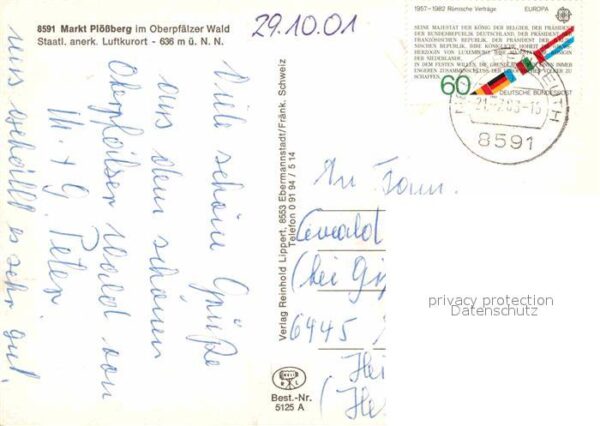 8591 Markt Plößberg im Oberpfälzer Wald
Staatl. anerk. Luftkurort - 636 m ü. N. N.
29.10.01
1957-1982 Römische Verträge EUROPA
SEINE MAJESTÄT DER KÖNIG DER BELGIER, DER PRÄSIDENT
DER BUNDESREPUBLIK DEUTSCHLAND, DER PRÄSIDENT DER
FRANZÖSISCHEN REPUBLIK, DER PRÄSIDENT DER ITALIENISCHEN
REPUBLIK, IHRE KÖNIGLICHE HOHEIT
HERZOGIN VON LUXEMBURG, IHRE MAJESTÄT
DER NIEDERLANDE,
IN DEM FESTEN WILLEN, DIE GRUNDLAGEN IMMER
ENGEREN ZUSAMMENSCHLUSS DER VÖLKER ZU
SCHAFFEN,
60
DEUTSCHE BUNDESPOST
8591
Viele schöne Grüße
aus dem schönen
Oberpfälzer Wald von
M. + G. Peter
uns gefällt es sehr gut.
Verlag Reinhold Lippert, 8553 Ebermannstadt/Fränk. Schweiz
Telefon 0 91 94 / 5 14
Best.-Nr.
5125 A
An Fam.
(bei
6445
privacy protection
Datenschutz